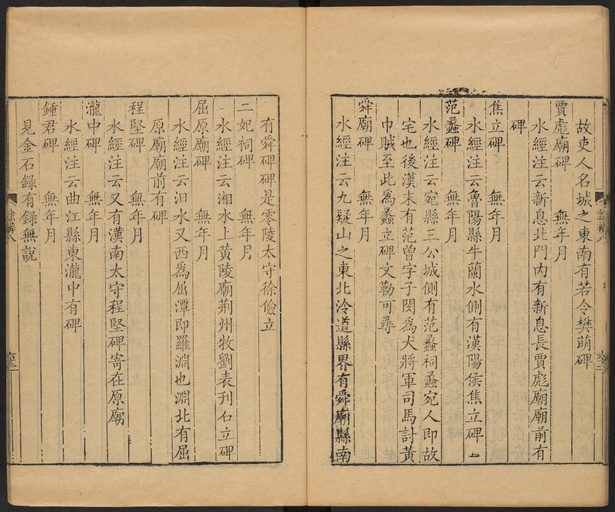 故吏人名城之東南有若令樊萌碑
賈彪廟碑 無年月
水經注云新息北門內有新息長賈彪廟廟前有
碑
焦立碑 無年月
水經注云魯陽縣牛蘭水側有漢陽侯焦立碑
范蠡碑 無年月
水經注云宛縣三公城側有范蠡祠蠡宛人即故
宅也後漢末有范曾字子閔為大將軍司馬討黃
巾賊至此為蠡立碑文勒可尋
舜廟碑 無年月
水經注云九疑山之東北泠道縣界有舜廟縣南
有舜碑碑是零陵太守徐儉立
二妃祠碑 無年月
水經注云湘水上黃陵廟荊州牧劉表刊石立碑
屈原廟碑 無年月
水經注云汨水又西為屈潭即羅淵也淵北有屈
原廟廟前有碑
程堅碑 無年月
水經注云又有漢南太守程堅碑寄在原廟
瀧中碑 無年月
水經注云曲江縣東瀧中有碑
鍾君碑 無年月
見金石錄有錄無說